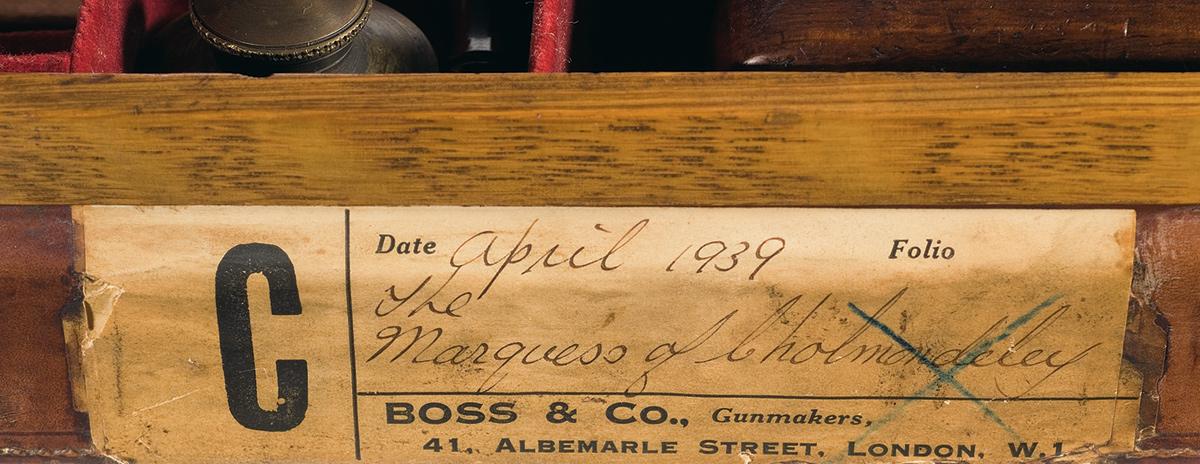 C
Date April 1939 Folio
The
Marquess of Cholmondeley
BOSS & CO., Gunmakers,
41, ALBEMARLE STREET, LONDON, W.1